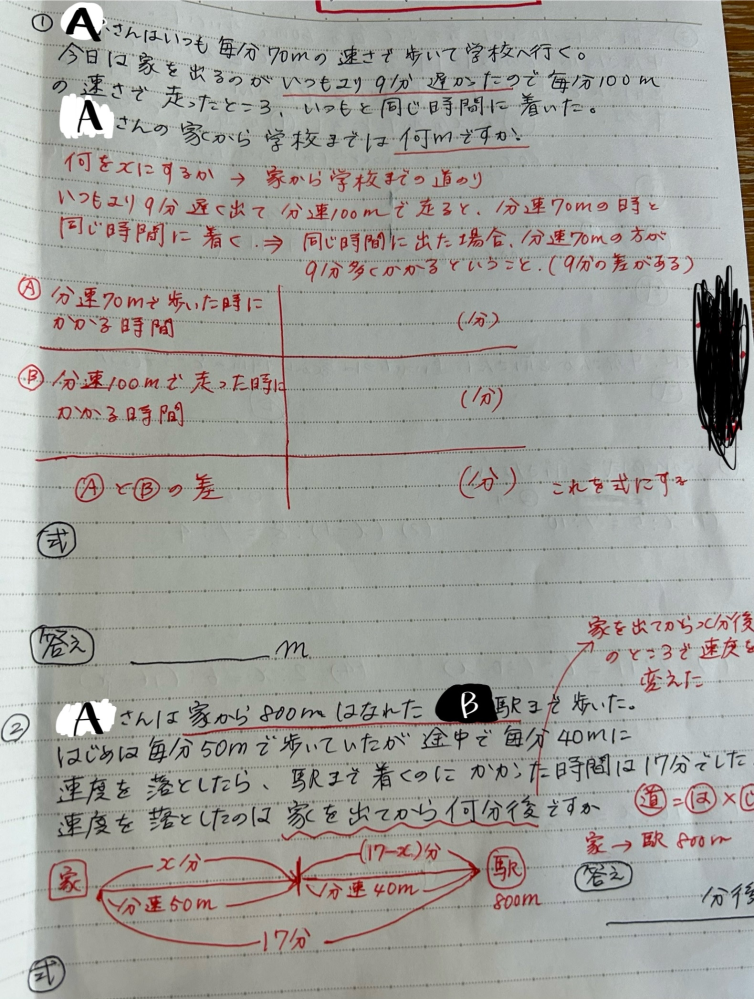 ① Aさんはいつも毎分70mの速さで歩いて学校へ行く。
今日は家を出るのがいつもより9分遅かったので毎分100m
の速さで走ったところ、いつもと同じ時間に着いた。
Aさんの家から学校までは何mですか?
何をxにするか → 家から学校までの道のり
いつもより9分遅く出て分速100mで走ると、分速70mの時と
同じ時間に着く。⇒ 同じ時間に出た場合、分速70mの方が
9分多くかかるということ。(9分の差がある)
Ⓐ 分速70mで歩いた時に
かかる時間
(分)
Ⓑ 分速100mで走った時に
かかる時間
(分)
ⒶとⒷの差
(分) これを式にする
式
答え m
家を出てからx分後
のところで速度を
変えた
② Aさんは家から800mはなれたB駅まで歩いた。
はじめは毎分50mで歩いていたが途中で毎分40mに
速度を落としたら、駅まで着くのにかかった時間は17分でした
速度を落としたのは家を出てから何分後ですか
道=は×
家→駅800m
答え
分後
x分 (17-x)分
家 駅
分速50m 分速40m
800m
17分
式